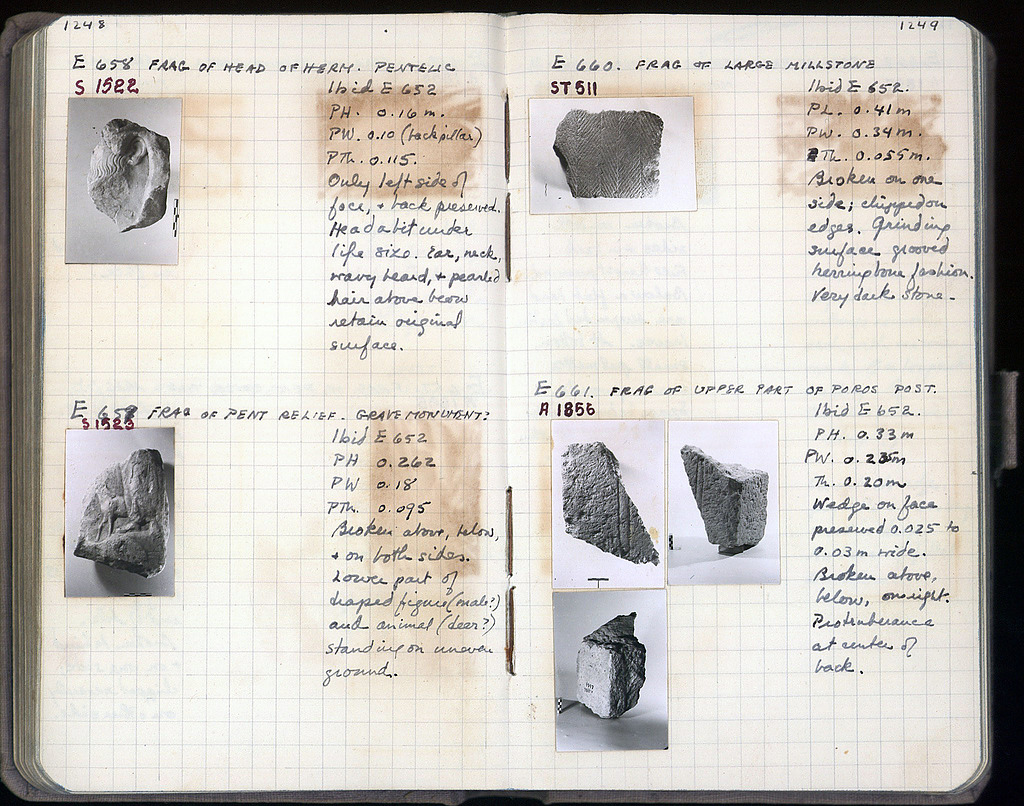 1248
E 658 FRAG OF HEAD OF HERM. PENTELIC
S 1522
Ibid E 652
PH. 0.16 m.
PW. 0.10 (back pillar)
PTh. 0.115.
Only left side of
face, + back preserved.
Head a bit under
life size. Ear, neck,
wavy beard, + pearled
hair above brow
retain original
surface.
E 659 FRAG OF PENT RELIEF. GRAVE MONUMENT?
S 1523
Ibid E 652
PH 0.262
PW 0.18
PTh. 0.095
Broken above, below,
+ on both sides.
Lower part of
draped figure (male?)
and animal (deer?)
standing on uneven
ground.
1249
E 660. FRAG OF LARGE MILLSTONE
ST 511
Ibid E 652.
PL. 0.41 m
PW. 0.34 m.
Th. 0.055 m.
Broken on one
side; chipped on
edges. Grinding
surface grooved
herringbone fashion.
Very dark stone.
E 661. FRAG OF UPPER PART OF POROS POST.
A 1856
Ibid E 652.
PH. 0.33 m
PW. 0.235 m
Th. 0.20 m
Wedge on face
preserved 0.025 to
0.03 m wide.
Broken above,
below, on right.
Protruberance
at center of
back.